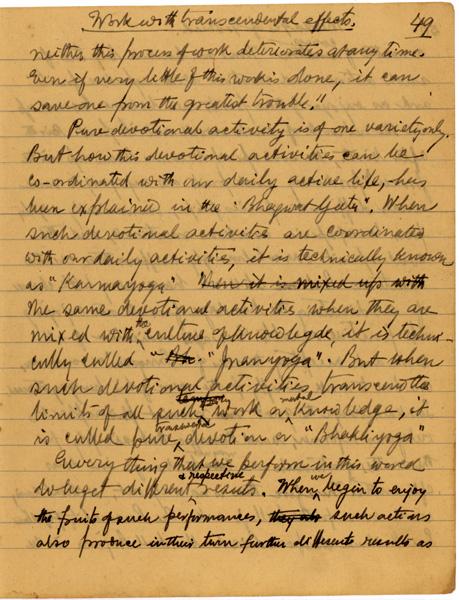 Work with transcendental effects.
49
neither this process of work deteriorates at any time.
Even if very little of this work is done, it can
save one from the greatest trouble."
Pure devotional activity is of one variety only.
But how this devotional activities can be
co-ordinated with our daily active life, has
been explained in the "Bhagwat Geeta". When
such devotional activities are coordinated
with our daily activities, it is technically known
as "Karmayoga" Then it is mixed up with
the same devotional activities when they are
mixed with the culture of knowlegde, it is techni-
cally called "Gnanyoga". But when
such devotional activities, transcend the
limits of all such work or mental knowledge, it
is called pure, transcendental devotion or "Bhaktiyoga"
Every thing that we perform in this world
do beget different & respective results. When we begin to enjoy
the fruits of such performances, they also such actions
also produce in their turn further different results as